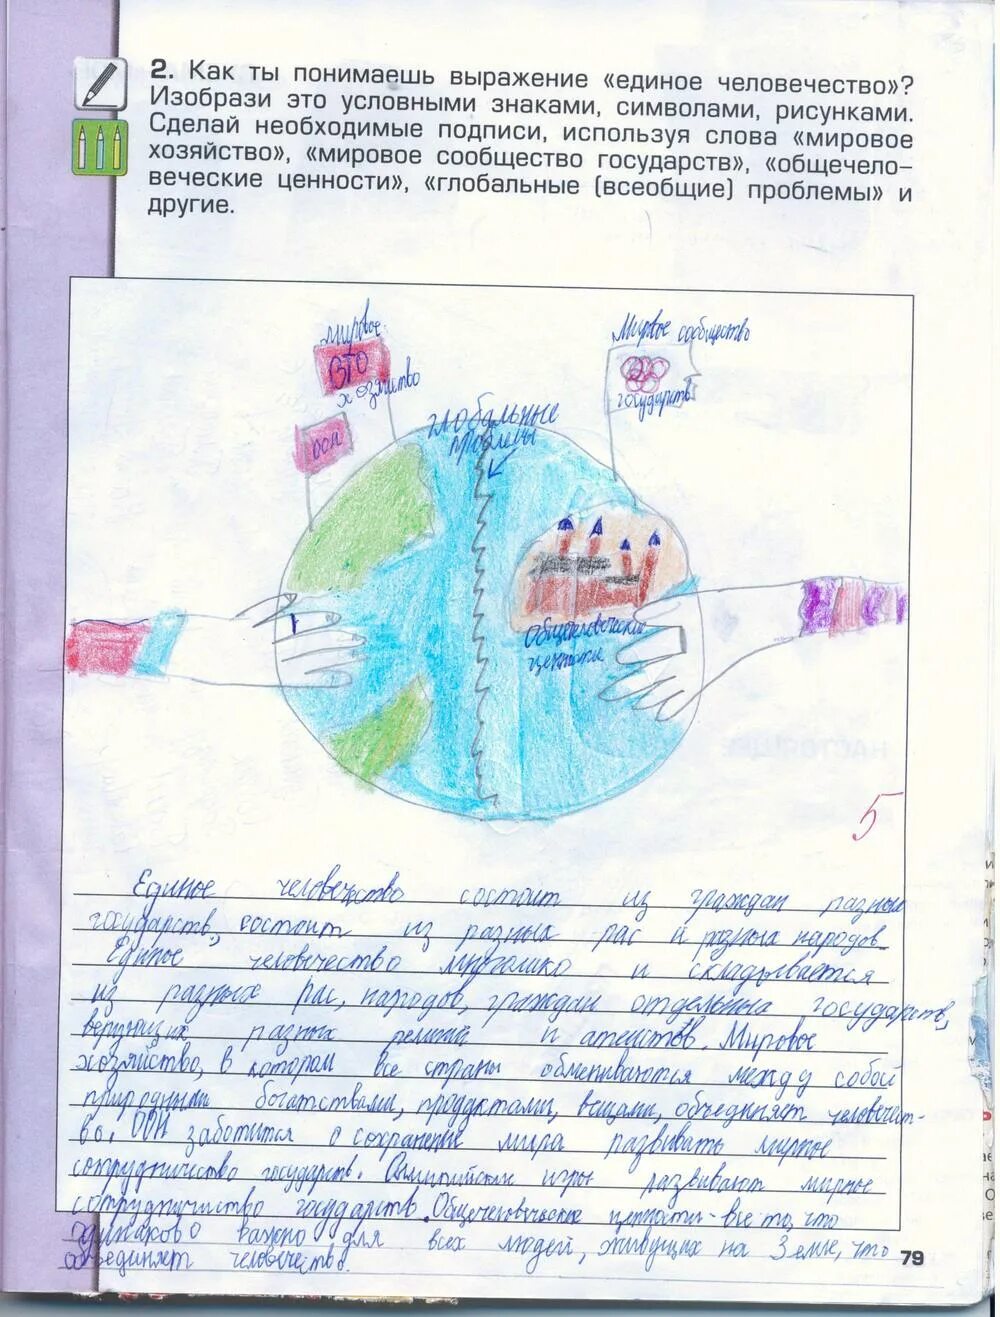 2. Как ты понимаешь выражение «единое человечество»?
Изобрази это условными знаками, символами, рисунками.
Сделай необходимые подписи, используя слова «мировое
хозяйство», «мировое сообщество государств», «общечело-
веческие ценности», «глобальные (всеобщие) проблемы» и
другие.
мировое
ВТО
хозяйство
ООН
Мировое сообщество
государств
глобальные
проблемы
Общечеловеческие
ценности
5
Единое человечество состоит из граждан разных
государств, состоит из разных рас и разных народов.
Единое человечество многолико и складывается
из разных рас, народов, граждан отдельных государств,
верующих разных религий и атеистов. Мировое
хозяйство, в котором все страны обмениваются между собой
природными богатствами, продуктами, вещами, объединяет человечест-
во. ООН заботится о сохранение мира развивать мирное
сотрудничество государств. Олимпийские игры развивают мирное
сотрудничество государств. Общечеловеческие ценности - все то, что
одинаково важно для всех людей, живущих на Земле, что
объединяет человечество.
79